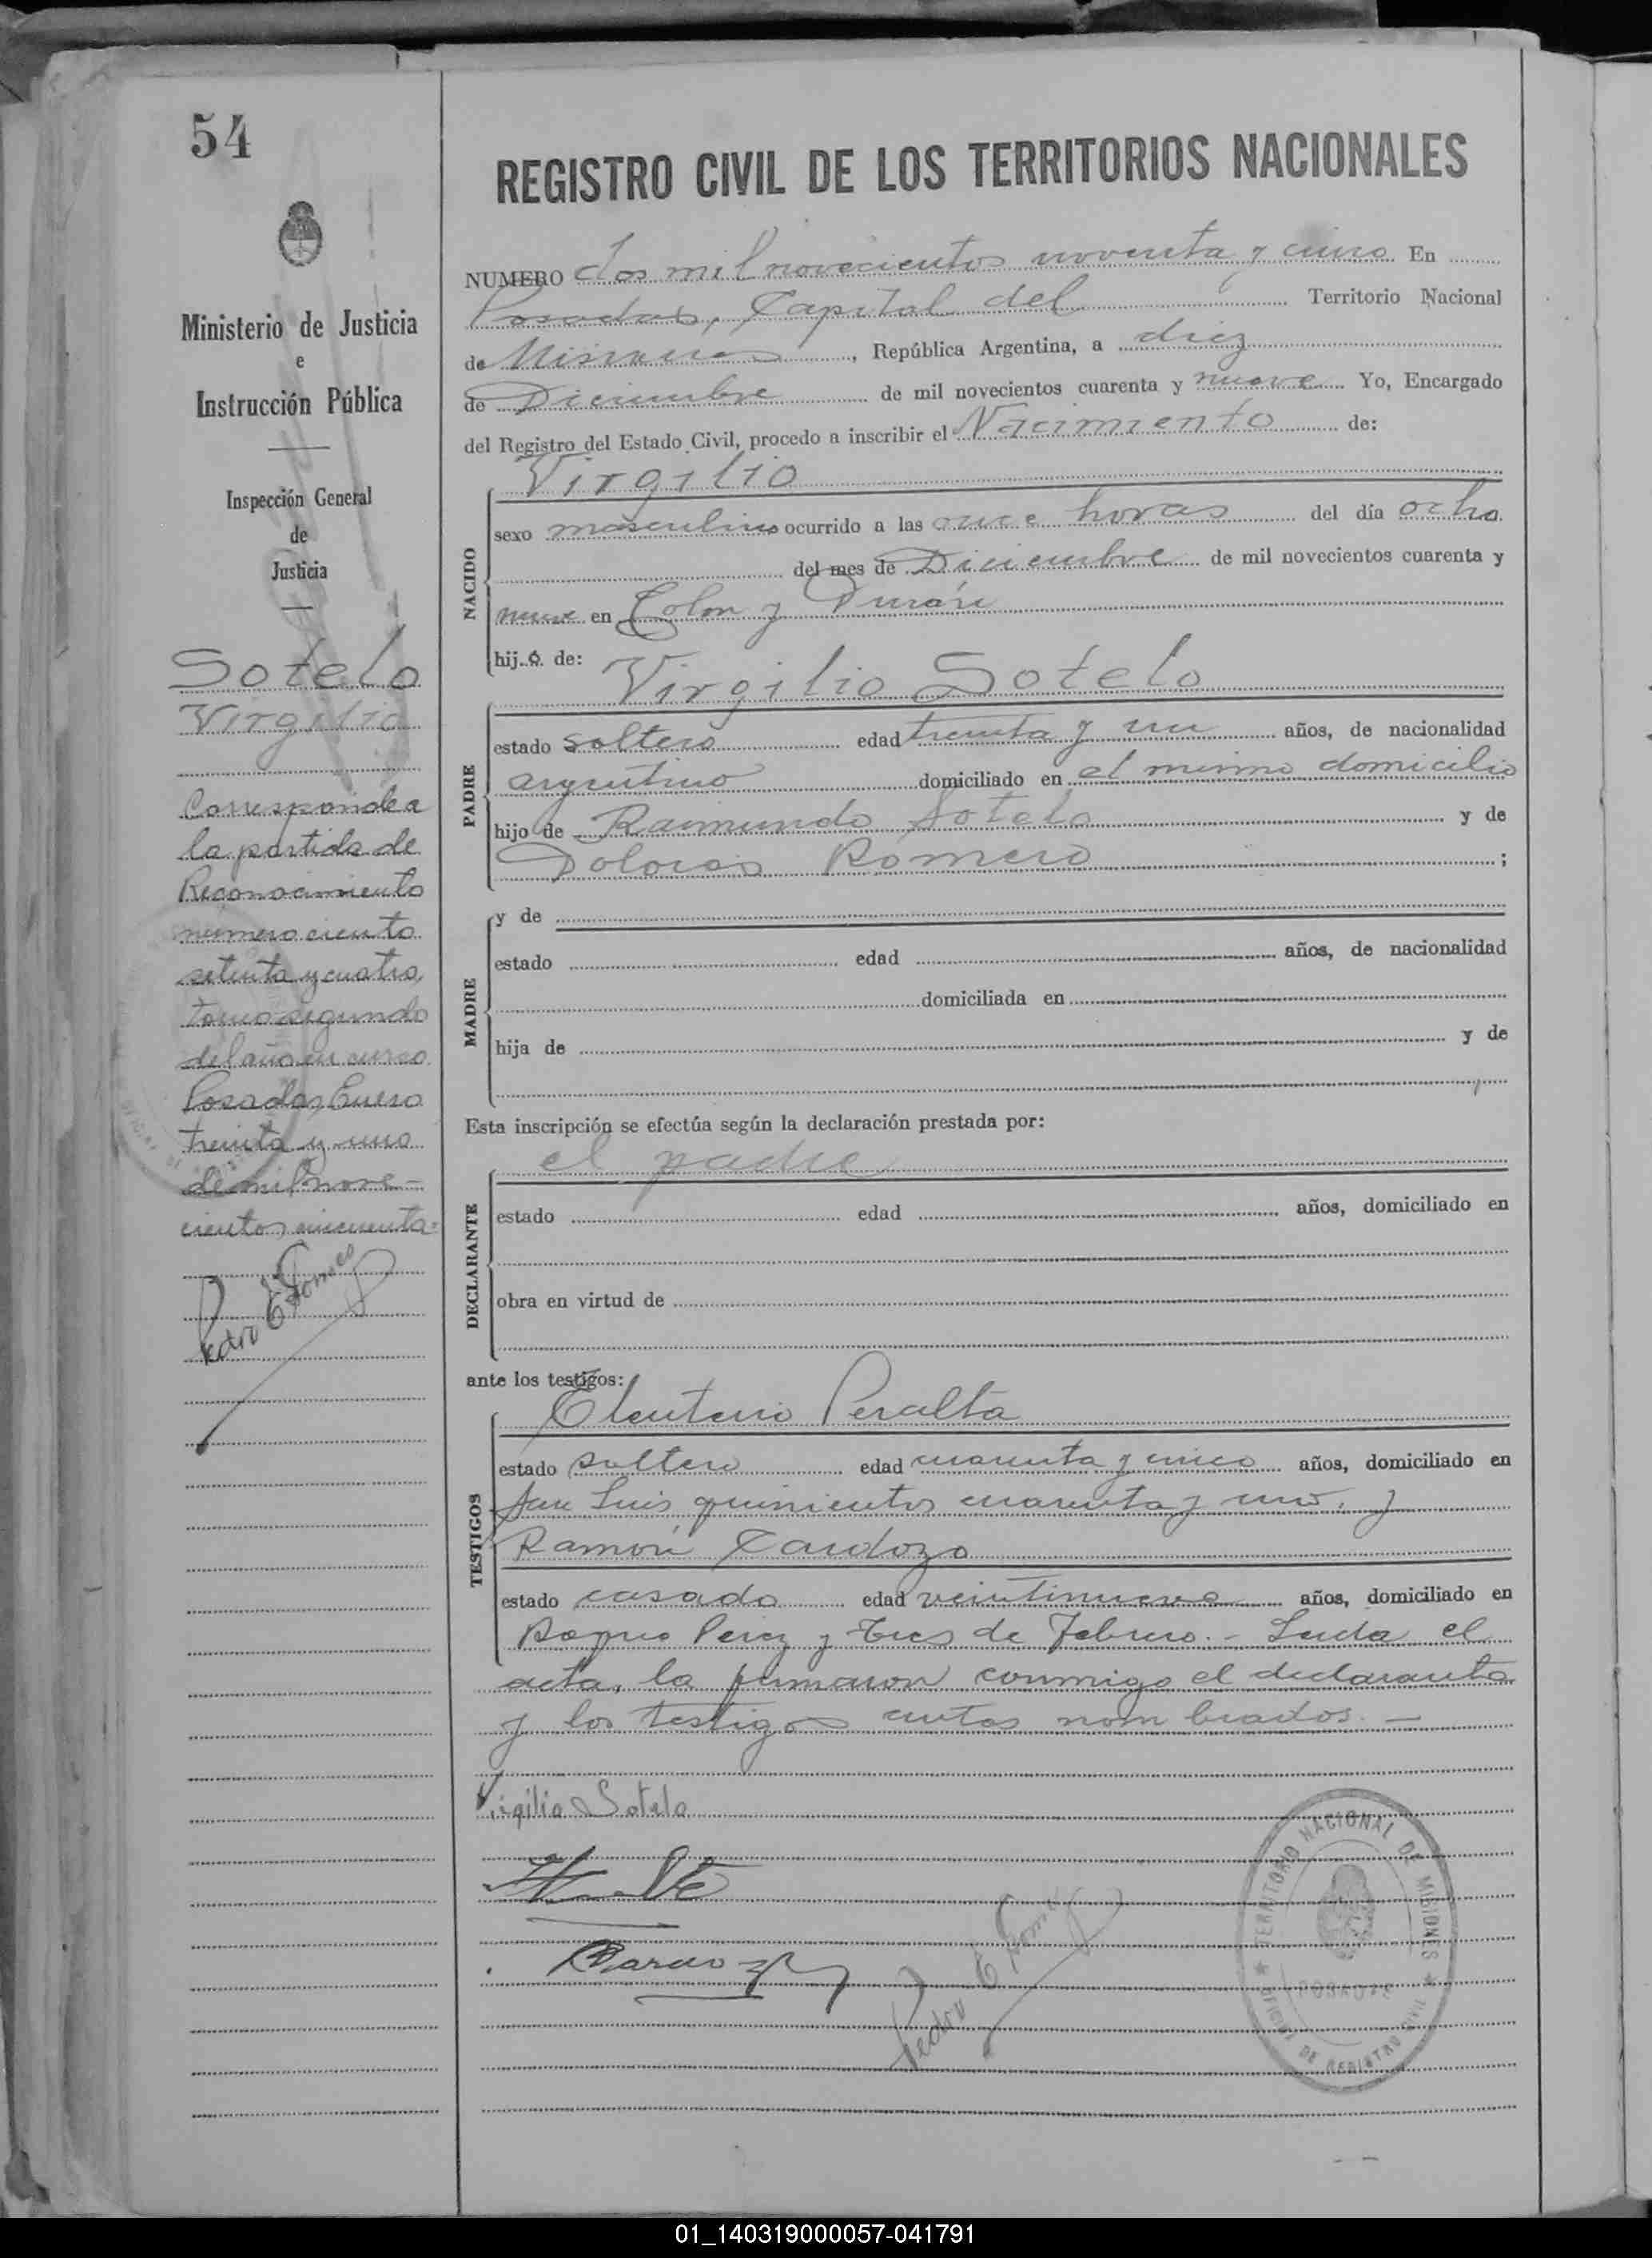 54
Ministerio de Justicia
e
Instrucción Pública
Inspección General
de
Justicia
Sotelo
Virgilio
Corresponde a
la partida de
Reconocimiento
número ciento
setenta y cuatro,
tomo segundo
del año en curso
Posadas, Enero
treinta y uno
de mil nove-
cientos cincuenta=
Pedro E Gomez
REGISTRO CIVIL DE LOS TERRITORIOS NACIONALES
NUMERO dos mil novecientos noventa y cinco En
Posadas, Capital del Territorio Nacional
de Misiones, República Argentina, a diez
de Diciembre de mil novecientos cuarenta y nueve Yo, Encargado
del Registro del Estado Civil, procedo a inscribir el Nacimiento de:
Virgilio
NACIDO
sexo masculino ocurrido a las once horas del día ocho
del mes de Diciembre de mil novecientos cuarenta y
nueve en Colon y Durán
hij.o. de:
Virgilio Sotelo
PADRE
estado soltero edad treinta y un años, de nacionalidad
argentino domiciliado en el mismo domicilio
hijo de Raimundo Sotelo y de
Dolores Romero ;
MADRE
y de
estado edad años, de nacionalidad
domiciliada en
hija de y de
Esta inscripción se efectúa según la declaración prestada por:
el padre
DECLARANTE
estado edad años, domiciliado en
obra en virtud de
ante los testigos:
Eleuterio Peralta
TESTIGOS
estado soltero edad cuarenta y cinco años, domiciliado en
San Luis quinientos cuarenta y uno, y
Ramón Cardozo
estado casado edad veintinueve años, domiciliado en
Roque Perez y Tres de Febrero.- Leida el
acta, la firmaron conmigo el declarante
y los testigos antes nombrados. -
Virgilio Sotelo
Cardozo
Pedro E Gomez
TERRITORIO NACIONAL DE MISIONES
POSADAS
OFICINA DE REGISTRO CIVIL
01_140319000057-041791